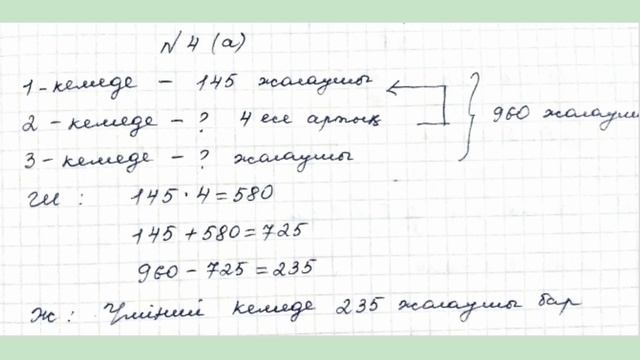 № 4 (а)
1 - кемеде - 145 жолаушы
2 - кемеде - ? 4 есе артық
960 жолаушы
3 - кемеде - ? жолаушы
Ш : 145 · 4 = 580
145 + 580 = 725
960 - 725 = 235
Ж : Үшінші кемеде 235 жолаушы бар